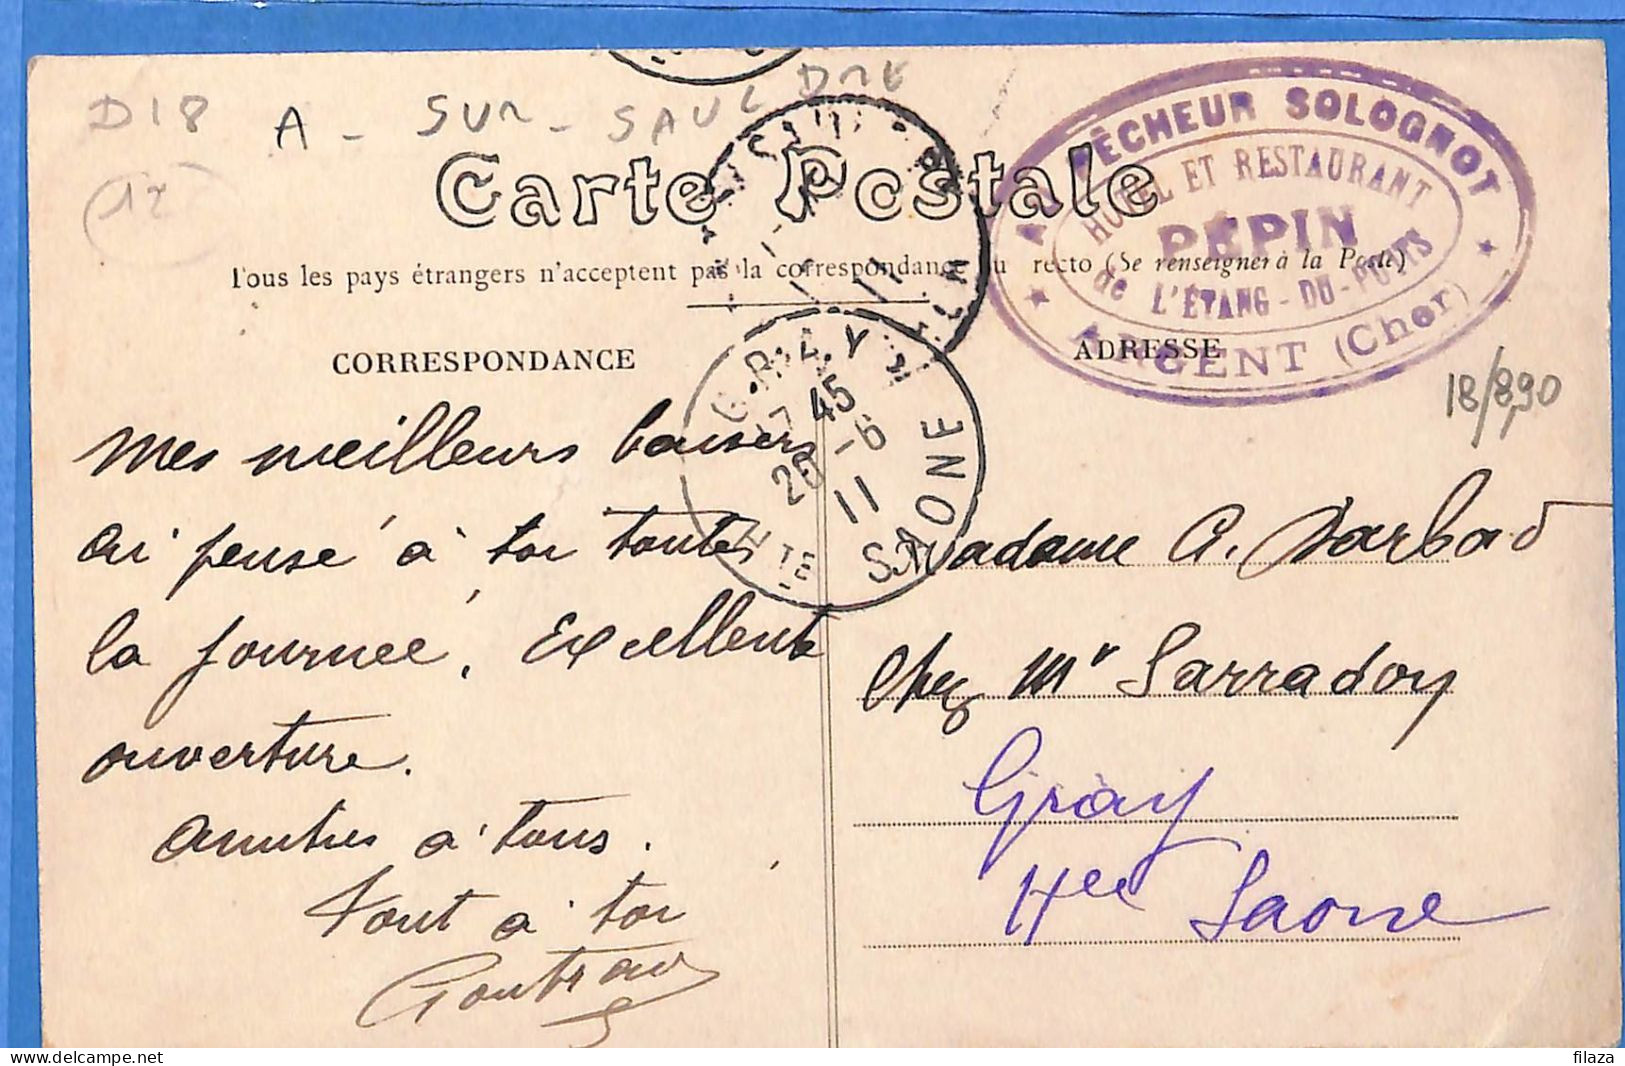 D18 A - SUR - SAULDRE
12
Carte Postale
AU PÊCHEUR SOLOGNOT
HOTEL ET RESTAURANT
PÉPIN
de L'ÉTANG-DU-PUITS
ARGENT (Cher)
Tous les pays étrangers n'acceptent pas la correspondance au recto (Se renseigner à la Poste)
CORRESPONDANCE
ADRESSE
18/8,90
GRAY
17 45
26 -6
11
HTE SAONE
Mes meilleurs baisers
ai pensé à toi toute
la journée. Excellente
ouverture.
Amitiés à tous.
Tout à toi
Gontran
Madame G. Darbad
Chez Mr Sarradoy
Gray
Hte Saone
delcampe.net
filaza